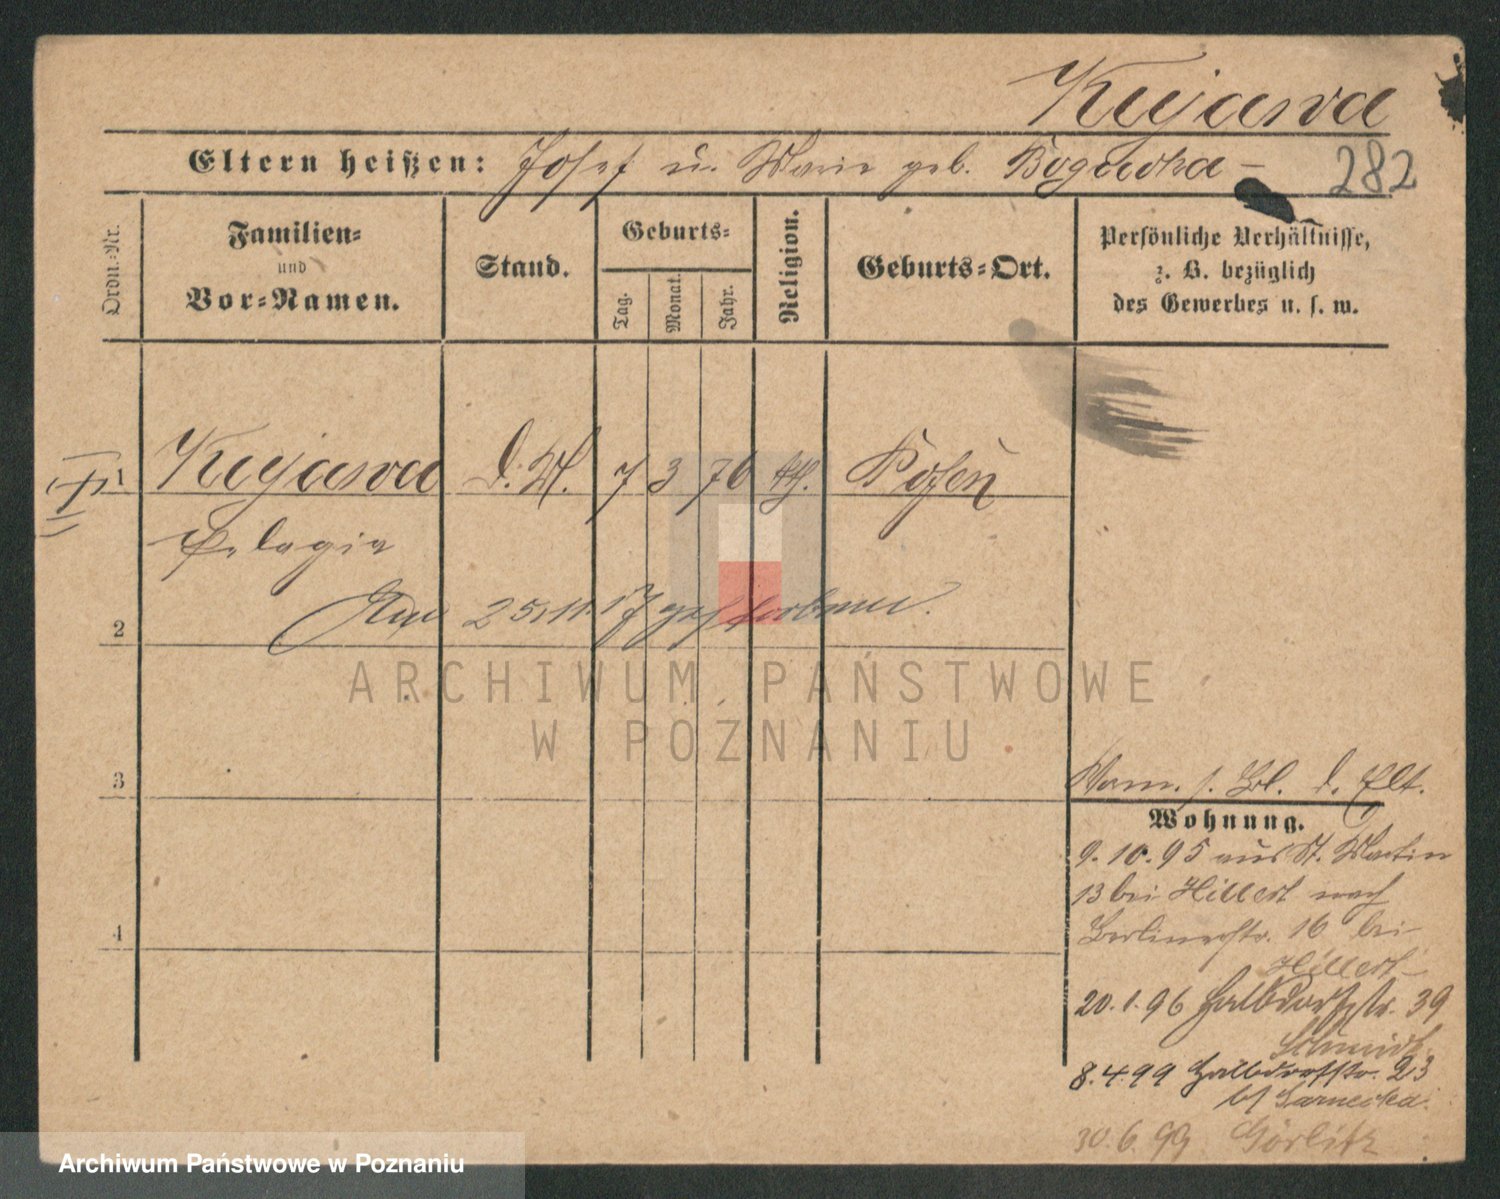 Kujawa
Eltern heißen: Josef u. Marie geb. Bogucka –
282
Ordn.-Nr.
Familien-
und
Vor-Namen.
Stand.
Geburts-
Tag.
Monat.
Jahr.
Religion.
Geburts-Ort.
Persönliche Verhältnisse,
z. B. bezüglich
des Gewerbes u. s. w.
1 Kujawa d. M. 7 3 76 kth. Posen
Pelagia
2 Am 25.11.17 gestorben.
ARCHIWUM PAŃSTWOWE
W POZNANIU
3
4
s. Bl. d. Elt.
Wohnung.
9.10.95 aus St. Martin
13 bei Hillert nach
Berlinerstr. 16 bei
Hillert
20.1.96 Halbdorfstr. 39
Schmidt
8.4.99 Halbdorfstr. 23
bei Garnecka
30.6.99 Görlitz
Archiwum Państwowe w Poznaniu